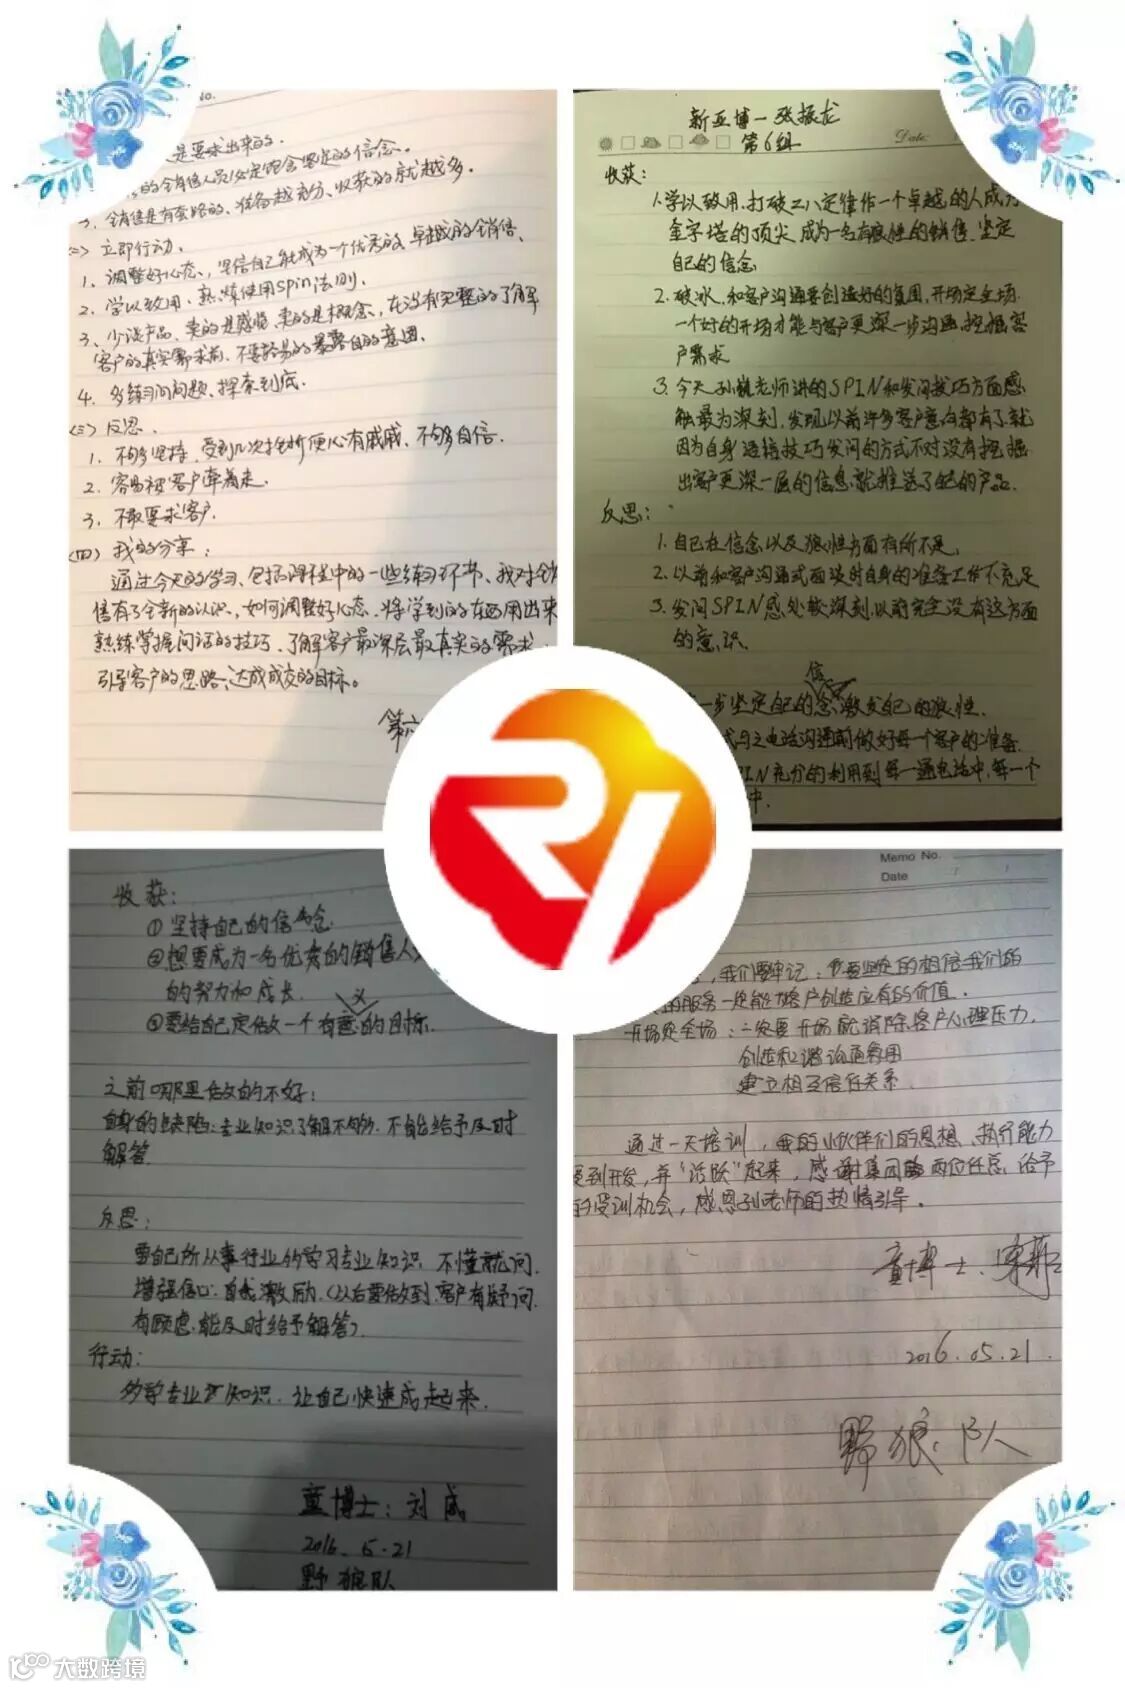 No.
是要求出来的.
的销售人员必定饱含坚定的信念。
3. 销售是有套路的、准备越充分、收获的就越多.
(二) 立即行动.
1. 调整好心态、坚信自己能成为一个优秀的、卓越的销售.
2. 学以致用、熟练使用spin法则.
3、少谈产品、卖的是感觉、卖的是概念、在没有完整的了解
客户的真实需求前、不要轻易的暴露自的意图.
4. 多练习问问题、探索到底.
(三) 反思.
1. 不够坚持、受到几次挫折便心有戚戚、不够自信.
2. 容易被客户牵着走.
3. 不敢要求客户.
(四) 我的分享:
通过今天的学习、包括课程中的一些练习环节、我对销
售有了全新的认识、如何调整好心态、将学到的东西用出来
熟练掌握问话的技巧、了解客户最深层最真实的需求、
引导客户的思路、达成成交的目标。
第六
新亚博—张振龙
第6组
Date:
收获:
1.学以致用,打破二八定律作一个卓越的人成为
金字塔的顶尖 成为一名有狼性的销售.坚定
自己的信念
2.破冰,和客户沟通要创造好的氛围,开场定全场
一个好的开场才能与客户更深一步沟通,挖掘客
户需求
3.今天孙巍老师讲的SPIN和发问技巧方面感
触最为深刻,发现以前许多客户意向都有了就
因为自身语接技巧发问的方式不对没有挖掘
出客户更深一层的信息,就推送了自己的产品.
反思:
1.自己在信念以及狼性方面有所不足,
2.以前和客户沟通或面谈时自身的准备工作不充足
3.发问SPIN感处较深刻,以前完全没有这方面
的意识.
信
一步坚定自己的念,激发自己的狼性.
或与之电话沟通前做好每一个客户的准备
PIN充分的利用到每一通电话中,每一个
中.
收获:
①坚持自己的信念
②想要成为一名优秀的销售人
的努力和成长.
义
③要给自己定做一个有意的目标.
之前哪里做的不好:
自身的缺陷:专业知识了解不够.不能给予及时
解答
反思:
要自己所从事行业的学习专业知识 不懂就问.
增强信心.自我激励.(以后要做到.客户有疑问.
有顾虑.能及时给予解答).
行动:
多学专业知识.让自己快速成起来.
童博士:刘威
2016.5.21
野狼队
Memo No.
Date
,我们要牢记:要坚定的相信我们的
的服务一定能为客户创造应有的价值.
开场定全场:一定要开场就消除客户心理压力.
创造和谐沟通氛围
建立相互信任关系.
通过一天培训,我的小伙伴们的思想、执行能力
受到开发,并“活跃”起来,感谢集团两位任总,给予
的受训机会,感恩孙老师的热情引导.
童博士.
2016.05.21.
野狼队
大数跨境